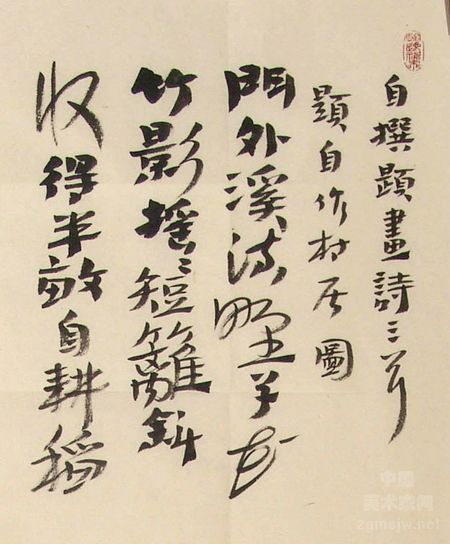 自撰題畫詩三首
題自作村居圖
門外溪
竹影搖〻短籬斜
收得半畝自耕稻
中国
美术家网
zgmsjw.net